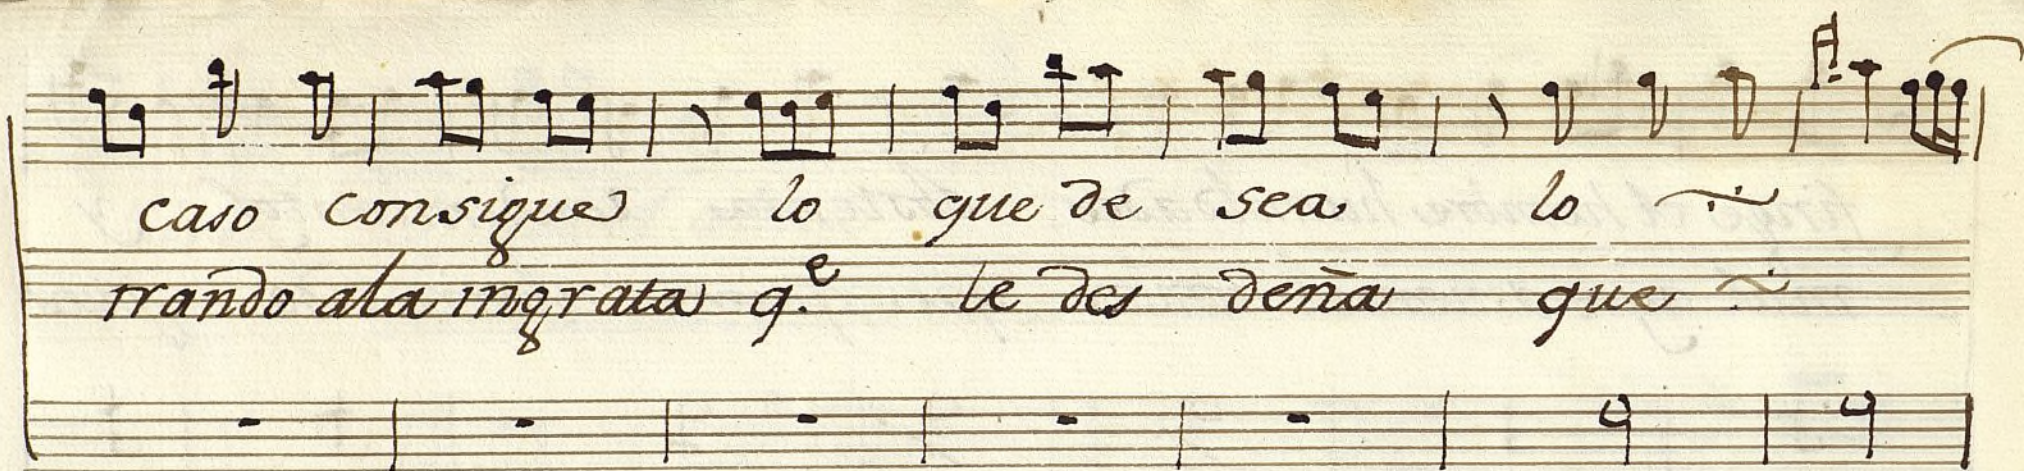 caso consigue lo que de sea lo
trando ala ingrata q.e le des deña que